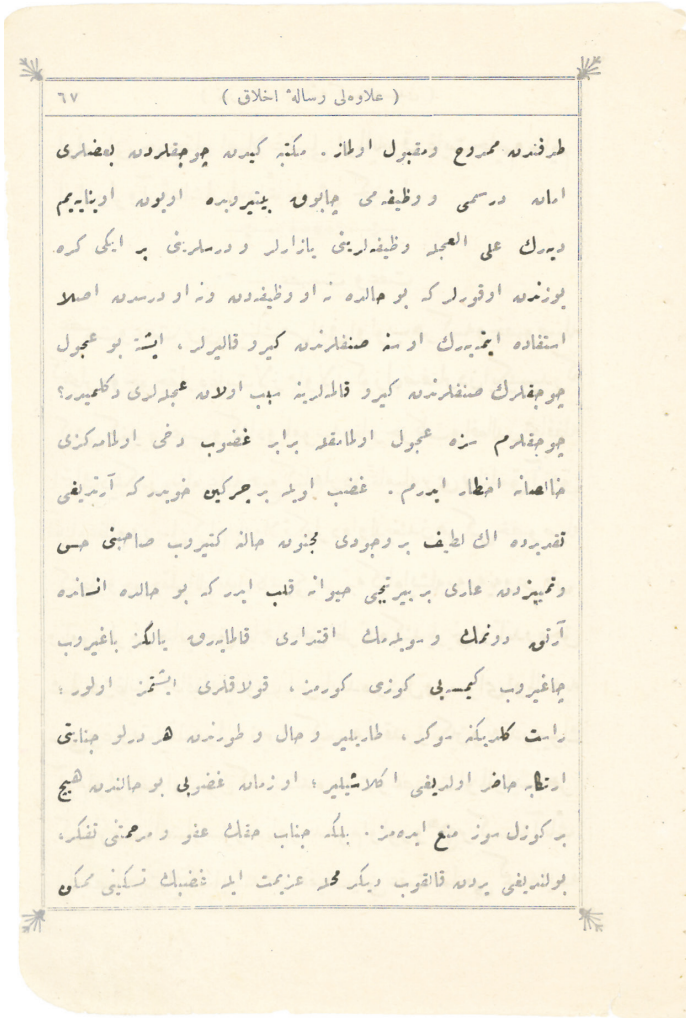 ( علاوه‌لی رسالهٔ اخلاق ) ٦٧
طرفندن ممدوح ومقبول اولماز . مكتبه كیدن چوجقلردن بعضلری
امان درسمی و وظیفه‌می چابوق بیتیروبده اویون اوینایه‌یم
دیه‌رك علی العجله وظیفه‌لرینی یازارلر و درسلرینی بر ایكی كره
یوزندن اوقورلر كه بو حالده نه او وظیفه‌دن ونه او درسدن اصلا
استفاده ایتمیه‌رك او سنه صنفلرندن كیرو قالیرلر ، ایشته بو عجول
چوجقلرك صنفلرندن كیرو قالمه‌لرینه سبب اولان عجله‌لری دكلمیدر؟
چوجقلرم سزه عجول اولمامقله برابر غضوب دخی اولمامه‌كزی
خالصانه اخطار ایدرم . غضب اویله بر چركین خویدر كه آرتدیغی
تقدیرده اك لطیف بر وجودی مجنون حالنه كتیروب صاحبنی حس
وتمییزدن عاری بر ییرتیجی حیوانه قلب ایدر كه بو حالده انسانده
آرتق دونمك و سویله‌مك اقتداری قالمایه‌رق یالكز باغیروب
چاغیروب كیمسه‌یی كوزی كورمز ، قولاقلری ایشتمز اولور ؛
راست كلدیكنه سوكر ، طاریلیر و حال و طورندن هر درلو جنایتی
ارتكابه حاضر اولدیغی اكلاشیلیر ؛ او زمان غضوبی بو حالندن هیچ
بر كوزل سوز منع ایده‌مز . بلكه جناب حقك عفو و مرحمتنی تفكر ،
بولندیغی یردن قالقوب دیكر محله عزیمت ایله غضبك تسكینی ممكن